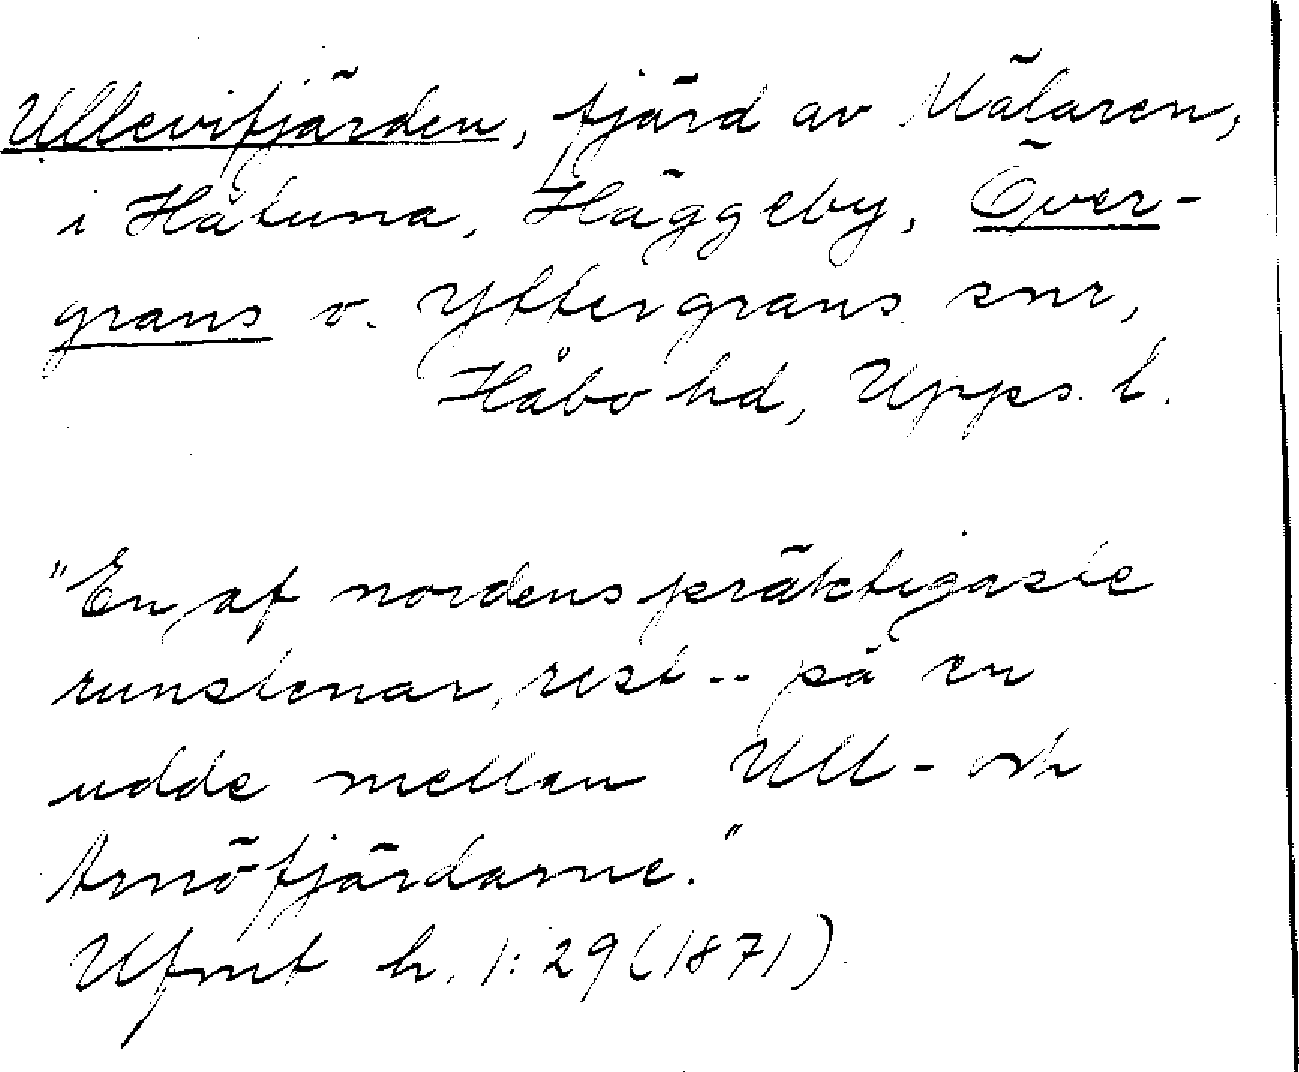 Ullevifjärden, fjärd av Mälaren,
i Håtuna, Häggeby, Över-
grans o. Yttergrans snr,
Håbo hd, Upps. l.
"En af nordens präktigaste
runstenar, rest -- på en
udde mellan Ull- och
Arnöfjärdarne."
Ufmt h. 1:29 (1871)